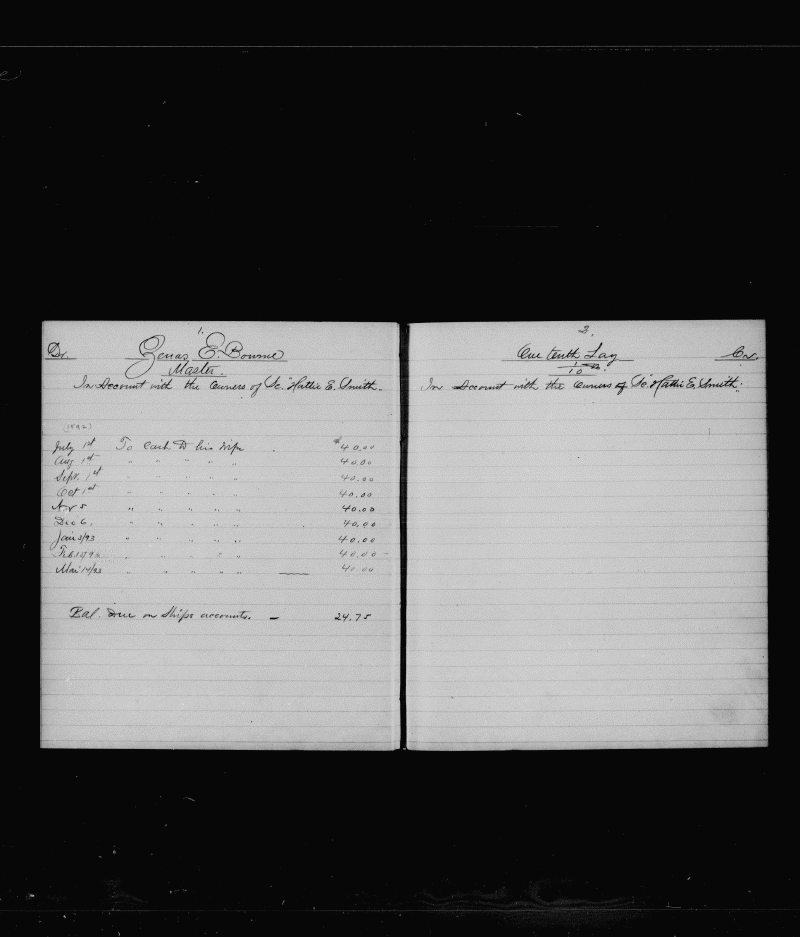 1.
Dr.
Zenas E. Bourne
Master.
In Account with the Owners of Sc. "Hattie E. Smith".
(1892)
July 1st To Cash to his wife . $40.00
Aug 1st " " " " " 40.00
Sept. 1st " " " " " 40.00
Oct 1st " " " " " 40.00
Nov 5 " " " " " 40.00
Dec 6. " " " " " 40.00
Jan 3/93 " " " " " 40.00
Feb. " " " " " 40.00
Mar 14/93 " " " " " 40.00
Bal. Due on Ships accounts. — 24.75
2.
One tenth Lay
Cr.
1/10
In Account with the Owners of Sc. "Hattie E. Smith".